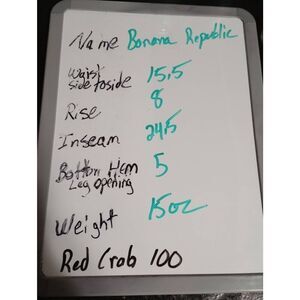 Name Banana Republic
Waist side to side 15.5
Rise 8
Inseam 24.5
Bottom Hem 5
Leg opening
Weight 15oz
Red Crab 100